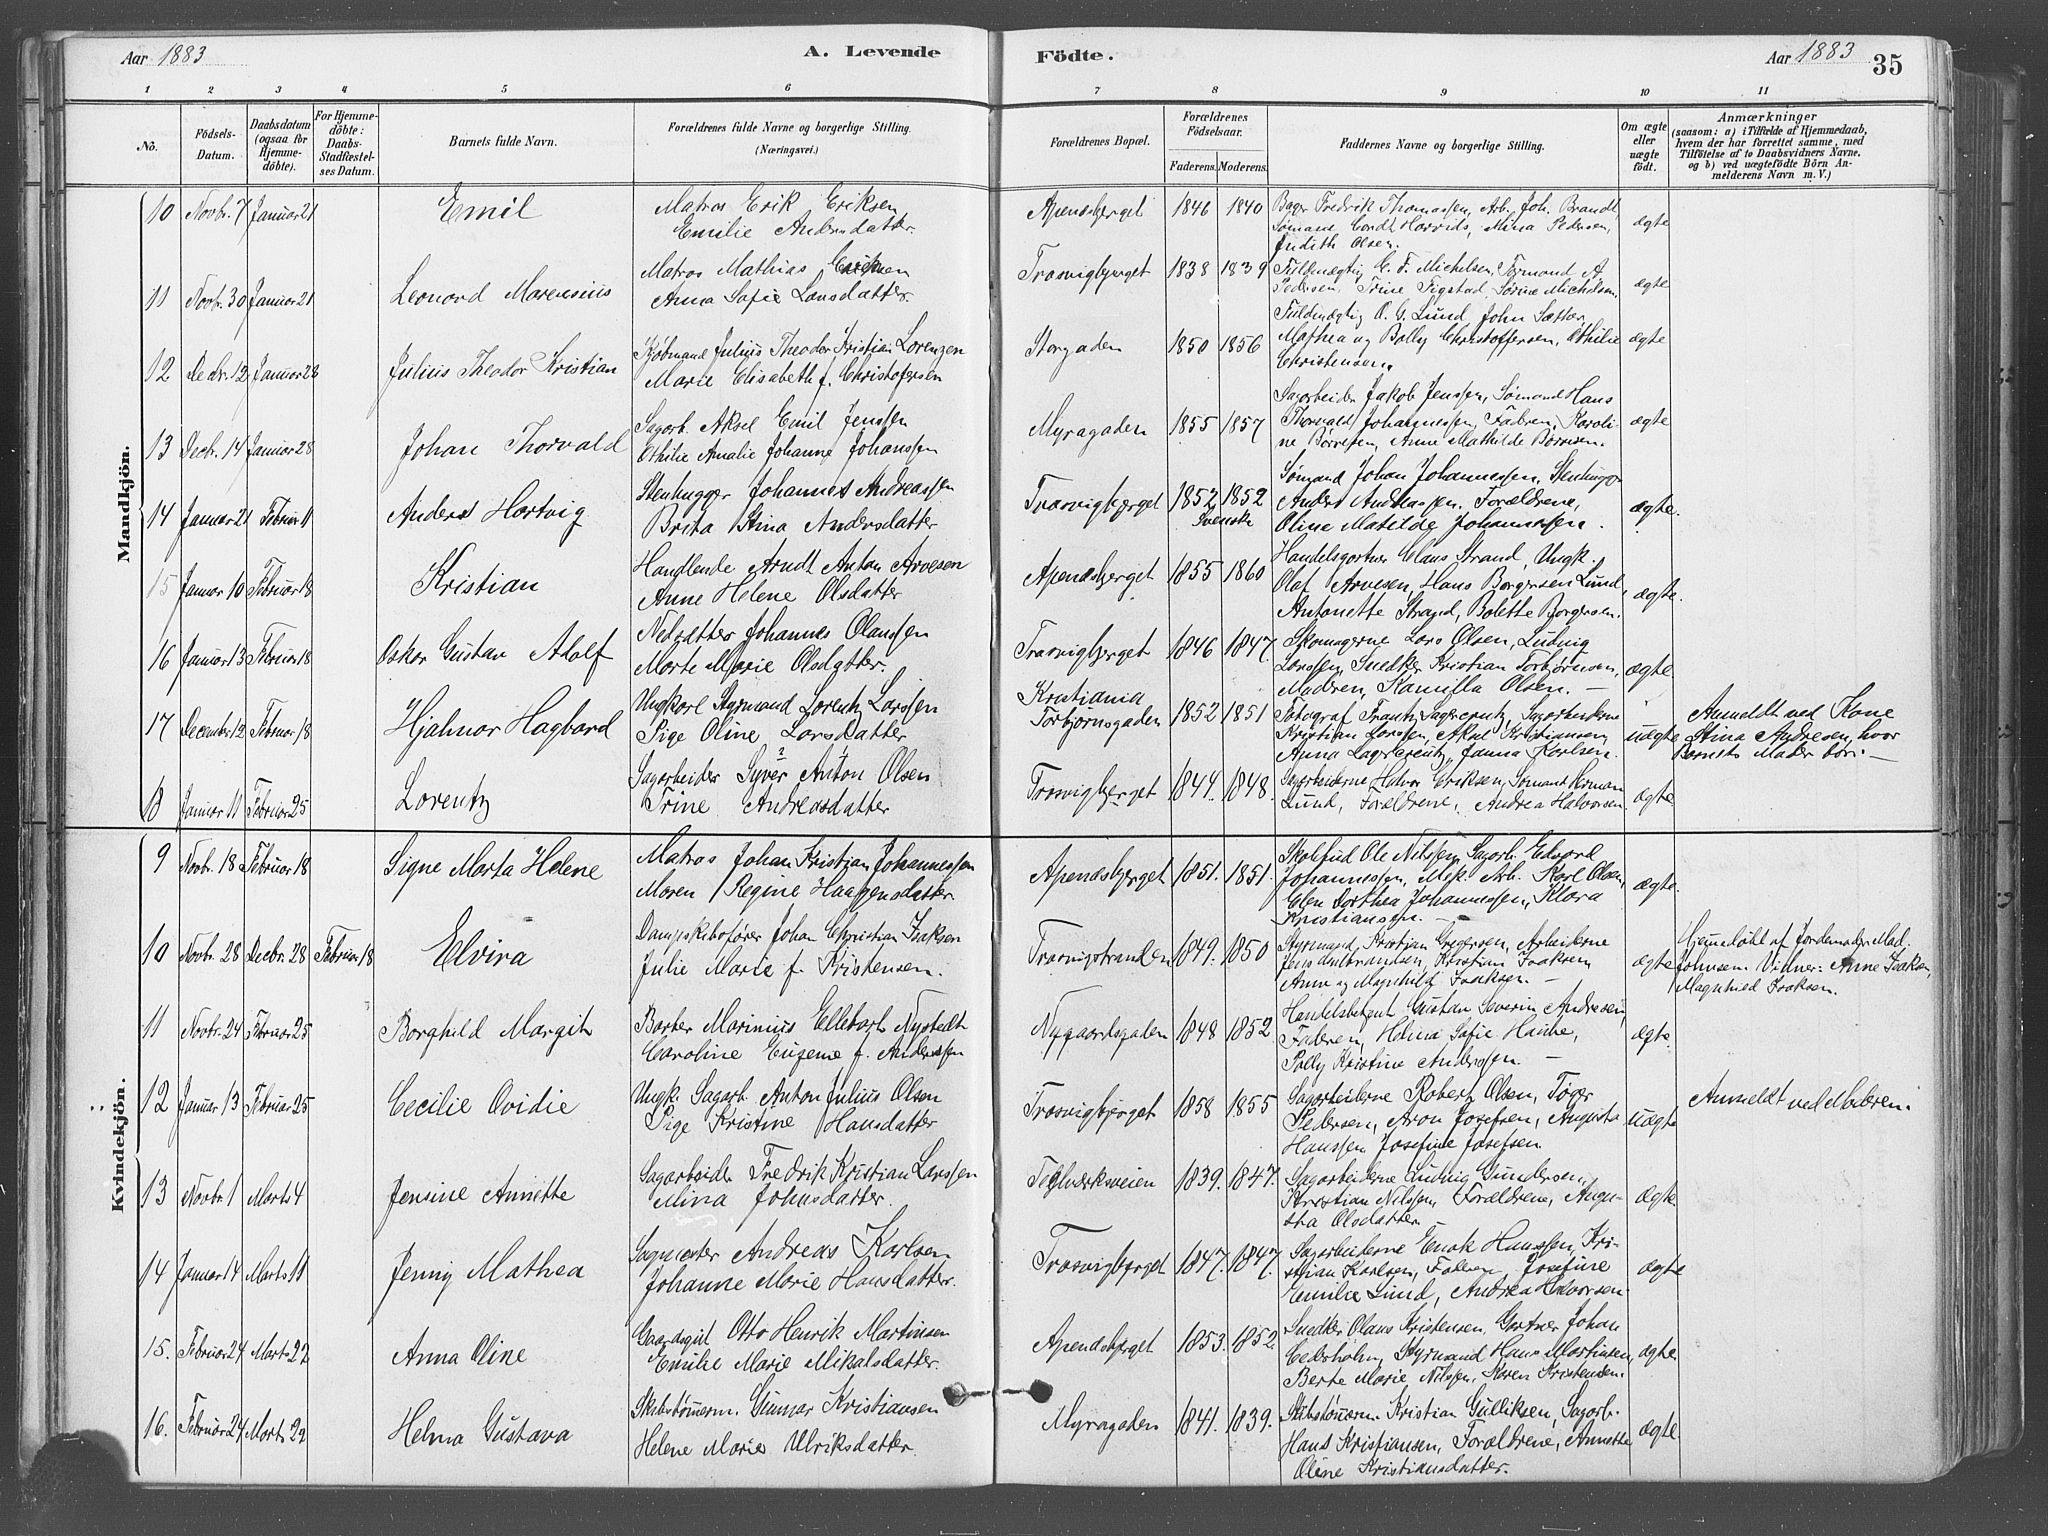 Aar 1883
A. Levende
Födte.
Aar 1883
35
1 2 3 4 5 6 7 8 9 10 11
No.
Födsels-Datum.
Daabsdatum (ogsaa for Hjemmedöbte).
For Hjemmedöbte: Daabs-Stadfæstelses Datum.
Barnets fulde Navn.
Forældrenes fulde Navne og borgerlige Stilling.
(Næringsvei.)
Forældrenes Bopæl.
Forældrenes Födselsaar.
Faderens. Moderens.
Faddernes Navne og borgerlige Stilling.
Om ægte eller uægte födt.
Anmærkninger
(saasom: a) i Tilfælde af Hjemmedaab,
hvem der har forrettet samme, med
Tilföielse af to Daabsvidners Navne.
og b) ved uægtefödte Börn An-
melderens Navn m. V.)
Mandkjön.
10 Novbr. 7 Januar 21 Emil
Matros Erik Eriksen
Emilie Andersdatter.
Apenæsbjerget 1846 1840
Bager Fredrik Thomassen, Arb. Joh. Brandt,
Sømand Cordt Horvids, Mina Pedersen,
Judith Olsen.
ægte
11 Novbr. 30 Januar 21 Leonard Marensius
Matros Mathias Eriksen
Anna Sofie Larsdatter.
Trosvigbjerget 1838 1839
Fuldmægtig E. F. Michelsen, Formand A.
Pedersen, Trine Tigstad, Sørine Michelsen.
ægte
12 Decbr. 12 Januar 28 Julius Theodor Kristian
Kjøbmand Julius Theodor Kristian Lorenzen
Marie Elisabeth f. Christofersen
Storgaden 1850 1856
Fuldmægtig O. G. Lund, John Sætter,
Mathea og Bolly Christoffersen, Othilie
Christensen.
ægte
13 Decb. 14 Januar 28 Johan Thorvald
Sagarb. Aksel Emil Jenssen
Othilie Amalie Johanne Johanssen
Myragaden 1855 1857
Sagarbeider Jakob Jenssen, Sømand Hans
Thorvald Johannessen, Fadren, Karoli-
ne Børresen, Anne Mathilde Børresen.
ægte
14 Januar 21 Februar 11 Anders Hartvig
Stenhugger Johannes Andreassen
Brita Stina Andersdatter
Trosvigbjerget 1852 1852
Svenske
Sømand Johan Johannessen, Stenhugger
Anders Andreassen, Forældrene,
Oline Matilde Johannessen.
ægte.
15 Januar 10 Februar 18 Kristian
Handlende Arndt Anton Arvesen
Anne Helene Olsdatter
Apenæsbjerget 1855 1860
Handelsgartner Claus Strand, Ungk.
Olaf Arvesen, Hans Borgersen Lund,
Antonette Strand, Bolette Borgersen.
ægte.
16 Januar 13 Februar 18 Oskar Gustav Adolf
Johannes Olaussen
Marte Marie Olsdatter.
Trosvigbjerget 1846 1847.
Skomagerne Lars Olsen, Ludvig
Larssen, Snedker Kristian Torbjørnsen,
Moderen, Kamilla Olsen. —
ægte
17 December 12 Februar 18 Hjalmar Hagbard
Ungkarl Styrmand Lorentz Larssen
Pige Oline Larsdatter
Kristiania
Torbjørnsgaden 1852 1851
Fotograf Frantz Lagercrantz, Sagarbeiderne
Kristian Larssen, Aksel Kristiansen,
Anna Lagercrantz, Janna Karlsen.
uægte
Anmeldt ved Kone
Stina Andresen, hvor
Barnets Moder bor. —
18 Januar 11 Februar 25 Lorentz
Sagarbeider Syver Anton Olsen
Trine Andreasdatter
Trosvigbjerget 1844. 1848.
Sagarbeiderne Halvor Eriksen, Sømand Herman
Lund, Forældrene, Andrea Halvorsen.
ægte
Kvindekjön.
9 Novbr. 18 Februar 18 Signe Marta Helene
Matros Johan Kristian Johannessen
Maren Regine Haagensdatter.
Apenæsbjerget 1851. 1851.
Skolefud Ole Nilssen, Sagarb. Edvard
Johannessen, Mek. Arb. Karl Olsen,
Elen Dorthea Johannessen, Klara
Kristiansen. —
ægte.
10 Novbr. 28 Decbr. 28 Februar 18 Elvira
Dampskibsfører Johan Christian Isaksen
Julie Marie f. Kristensen.
Trosvigstranden 1849. 1850
Styrmand Kristian Gregersen, Arbeiderne
Jens Aulbrandsen, Kristian Isaksen,
Anne og Magnhild Isaksen. —
ægte
Hjemmedøbt af Jordemoder Mad.
Johnsen. Vidner: Anne Isaksen,
Magnhild Isaksen.
11 Novbr. 24 Februar 25 Borghild Margit
Barber Marinius Ellebart Nystedt
Caroline Eugene f. Anderssen
Nygaardsgaden 1848 1852
Handelsbetjent Gustav Severin Andresen,
Faderen, Helma Sofie Hauke,
Polly Kristine Anderssen. —
ægte.
12 Januar 13 Februar 25 Cecilie Ovidie
Ungk. Sagarb. Anton Julius Olsen
Pige Kristine Hansdatter
Trosvigbjerget 1858 1855
Sagarbeiderne Robert Olsen, Tøger
Pedersen, Aron Josefsen, Augusta
Hanssen, Josefine Josefsen.
uægte
Anmeldt ved Moderen.
13 Novbr. 1 Marts 4 Jensine Annette
Sagarbeider Fredrik Kristian Larssen
Mina Johnsdatter.
Teglverksveien 1839. 1847.
Sagarbeiderne Ludvig Gundersen,
Kristian Nilssen, Forældrene, Augu-
sta Olsdatter.
ægte
14 Januar 14 Marts 11 Jenny Mathea
Sagmester Andreas Karlsen
Johanne Marie Hansdatter.
Trosvigbjerget 1847. 1847.
Sagarbeiderne Enok Hanssen, Kri-
stian Karlsen, Faderen, Josefine
Emilie Lund, Andrea Halvorsen.
ægte
15. Februar 24 Marts 22 Anna Oline
Gaardsgut Otto Henrik Martinsen
Emilie Marie Mikalsdatter.
Apenæsbjerget 1853. 1852.
Snedker Olaus Kristensen, Gartner Johan
Cederholm, Styrmand Hans Martinsen,
Berte Marie Nilssen, Karen Kristensen.
ægte.
16. Februar 24 Marts 29 Helma Gustava
Skibstømerm. Gunnar Kristiansen
Helene Marie Ulriksdatter.
Myragaden 1841. 1839.
Skibstømerm. Kristian Gulliksen, Sagarb.
Hans Kristiansen, Forældrene, Annette
Oline Kristiansdatter.
ægte.